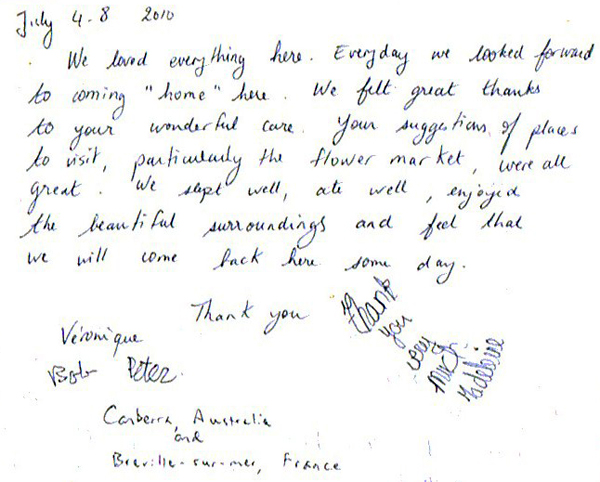 July 4-8 2010
We loved everything here. Everyday we looked forward
to coming "home" here. We felt great thanks
to your wonderful care. Your suggestions of places
to visit, particularly the flower market, were all
great. We slept well, ate well, enjoyed
the beautiful surroundings and feel that
we will come back here some day.
Thank you
Véronique
Bob Peter.
Canberra, Australia
and
Breville-sur-mer, France
Thank
you
very
much...